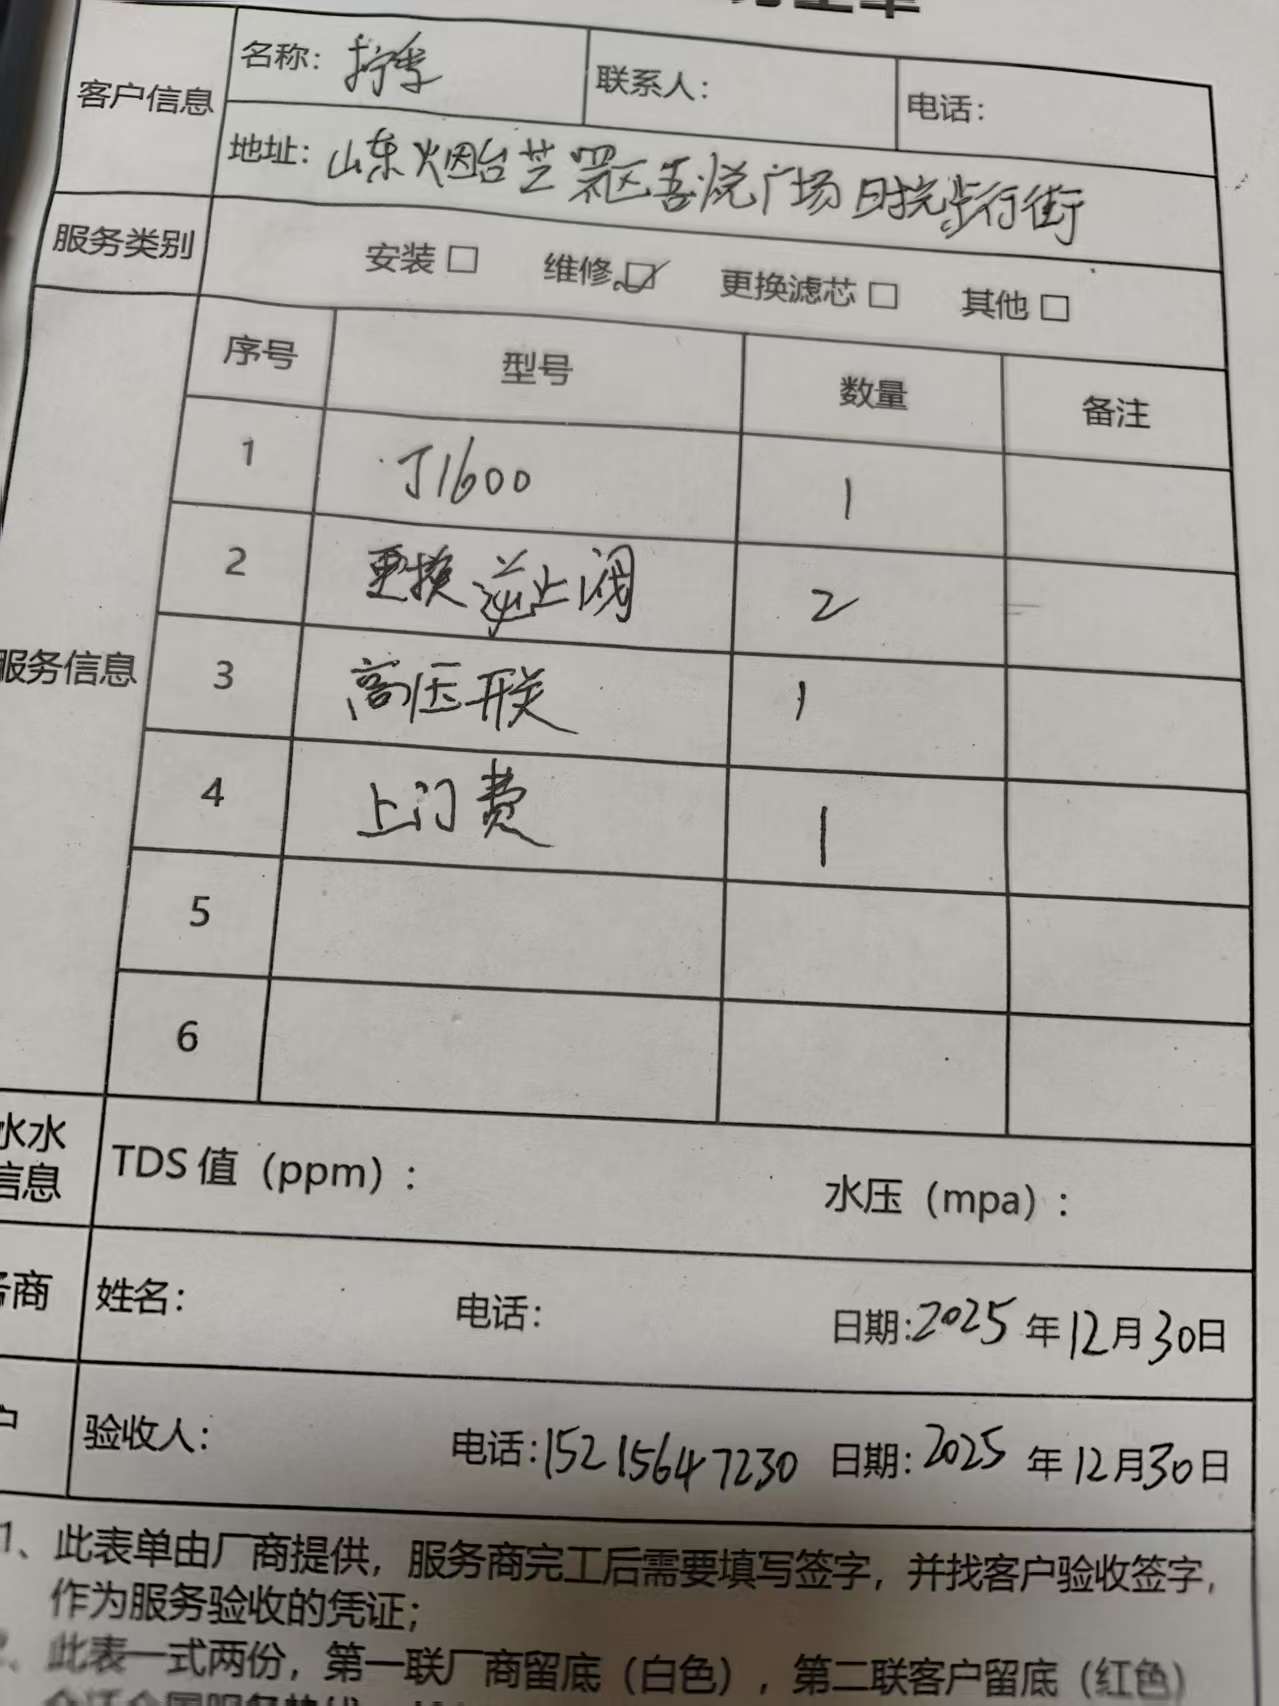 客户信息
名称: 拧季
联系人:
电话:
地址: 山东烟台芝罘区吾悦广场 步行街
服务类别
安装□ 维修☑ 更换滤芯□ 其他□
服务信息
序号 型号 数量 备注
1 J1600 1
2 更换逆止阀 2
3 高压开关 1
4 上门费 1
5
6
水水
信息
TDS 值（ppm）: 水压（mpa）:
务商
姓名: 电话: 日期:2025 年12月30日
户
验收人: 电话:15215647230 日期: 2025 年12月30日
1、此表单由厂商提供，服务商完工后需要填写签字，并找客户验收签字，
作为服务验收的凭证；
2、此表一式两份，第一联厂商留底（白色），第二联客户留底（红色）